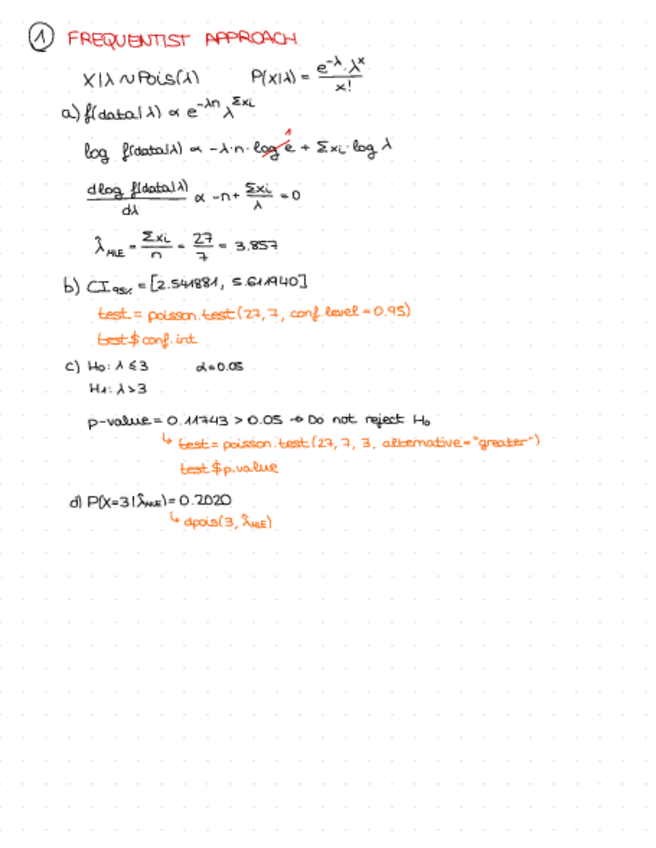 1 FREQUENTIST APPROACH
X|λ ~ Pois(λ) P(X|λ) = e^-λ · λ^x / x!
a) f(data|λ) ∝ e^-λn λ^Σxi
log f(data|λ) ∝ -λ·n·log e 1 + Σxi·log λ
dlog f(data|λ) / dλ ∝ -n + Σxi / λ = 0
λ̂MLE = Σxi / n = 27 / 7 = 3.857
b) CI95% = [2.541881, 5.611940]
test = poisson.test(27, 7, conf.level = 0.95)
test$conf.int
c) H0: λ ≤ 3 α = 0.05
H1: λ > 3
p-value = 0.11743 > 0.05 → Do not reject H0
↳ test = poisson.test(27, 7, 3, alternative = "greater")
test$p.value
d) P(X=3|λ̂MLE) = 0.2020
↳ dpois(3, λ̂MLE)